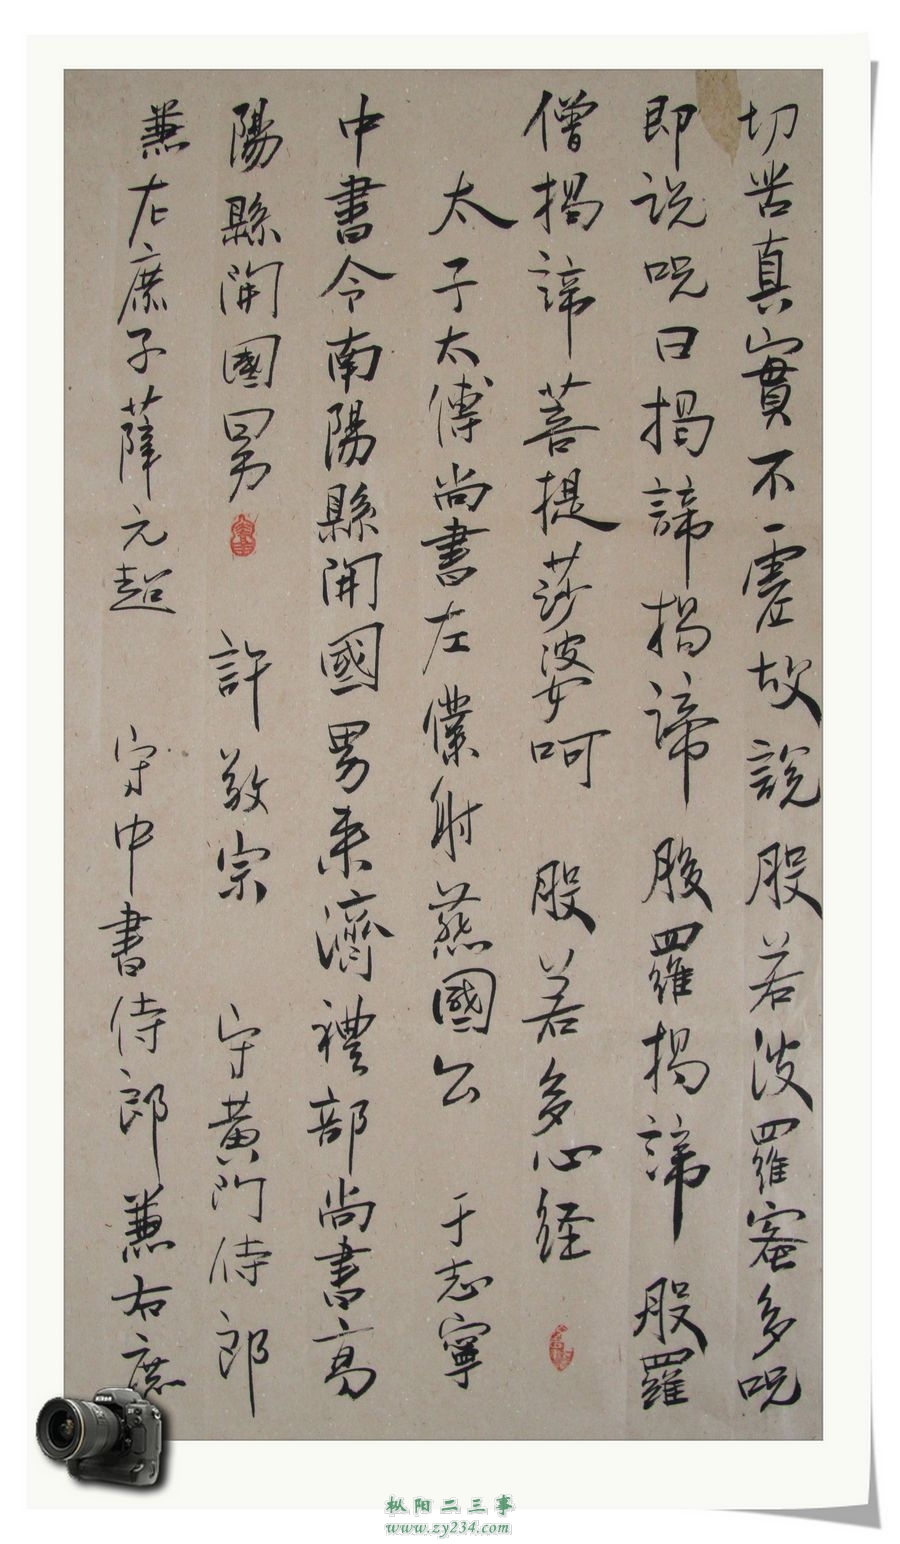 切苦真實不虛故說般若波羅蜜多呪
即说呪曰揭諦揭諦般羅揭諦般羅
僧揭諦菩提莎婆呵 般若多心経
太子太傅尚書左僕射燕國公 于志寧
中書令南陽縣開國男来濟禮部尚書高
陽縣開國男 許敬宗 守黄门侍郎
兼左庶子薛元超 守中書侍郎兼右庶
枞阳二三事
www.zy234.com